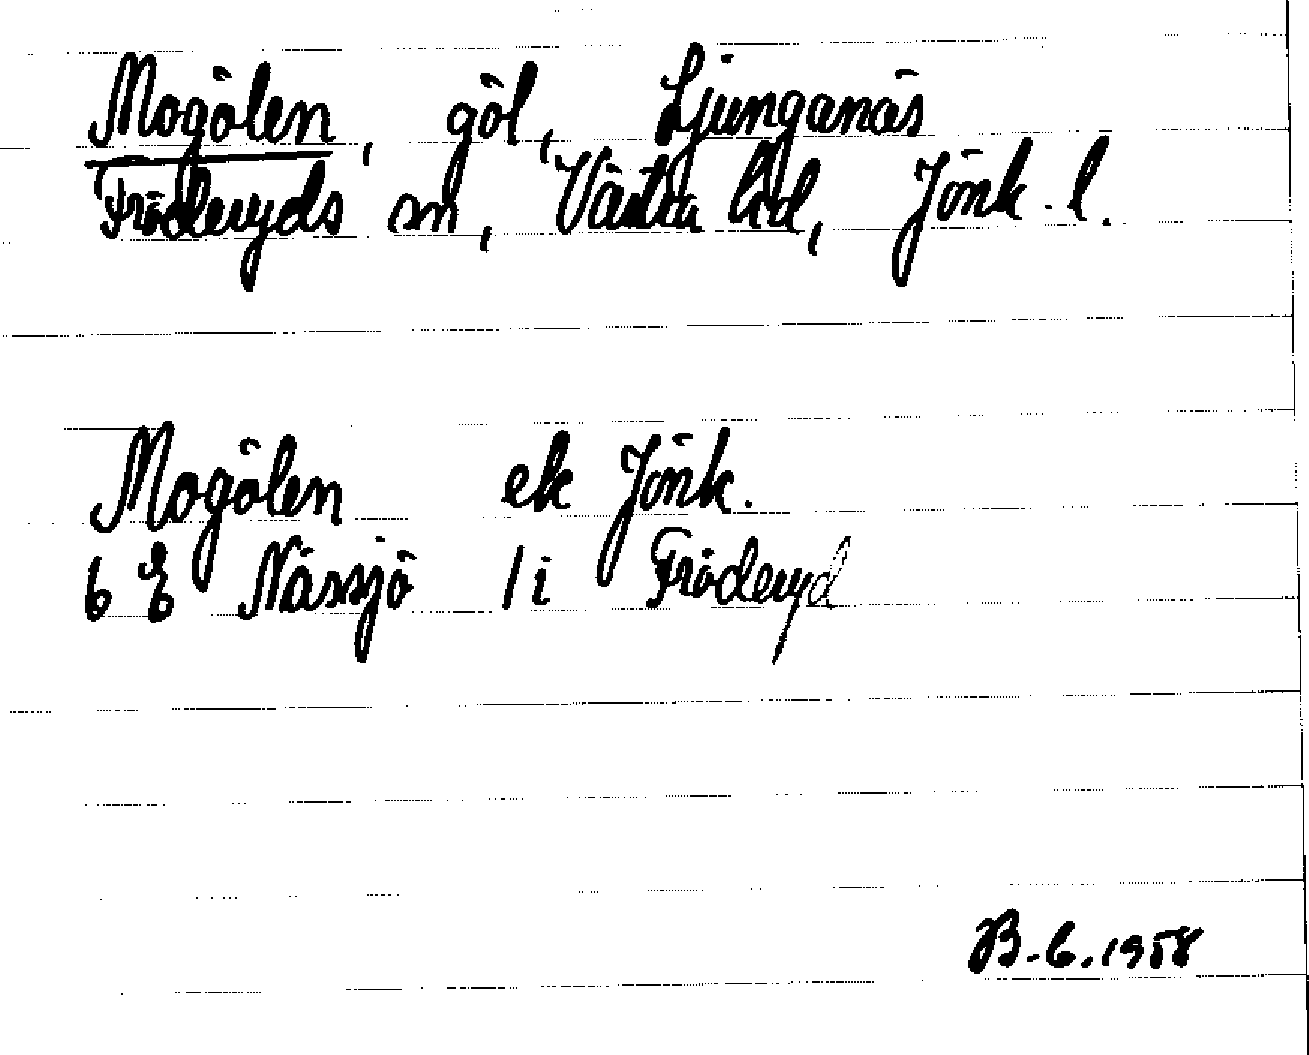 Mogölen, göl, Ljunganäs
Fröderyds sn, Västra hd, Jönk. l.
Mogölen ek Jönk.
6 E Nässjö 1 i Fröderyd
B.6.1958